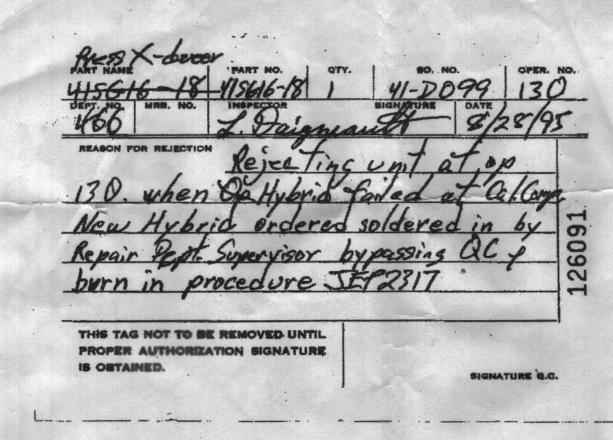 Press X-ducer
PART NAME PART NO. QTY. SO. NO. OPER. NO.
415616-18 415616-18 1 41-D099 130
DEPT. NO. MRB. NO. INSPECTOR SIGNATURE DATE
466 L. Daigneault 8/28/95
REASON FOR REJECTION Rejecting unit at op
130. when Hybrid failed at Cal.
New Hybrid ordered soldered in by
Repair Dept. Supervisor bypassing QC &
burn in procedure JEP2317
126091
THIS TAG NOT TO BE REMOVED UNTIL
PROPER AUTHORIZATION SIGNATURE
IS OBTAINED.
SIGNATURE Q.C.